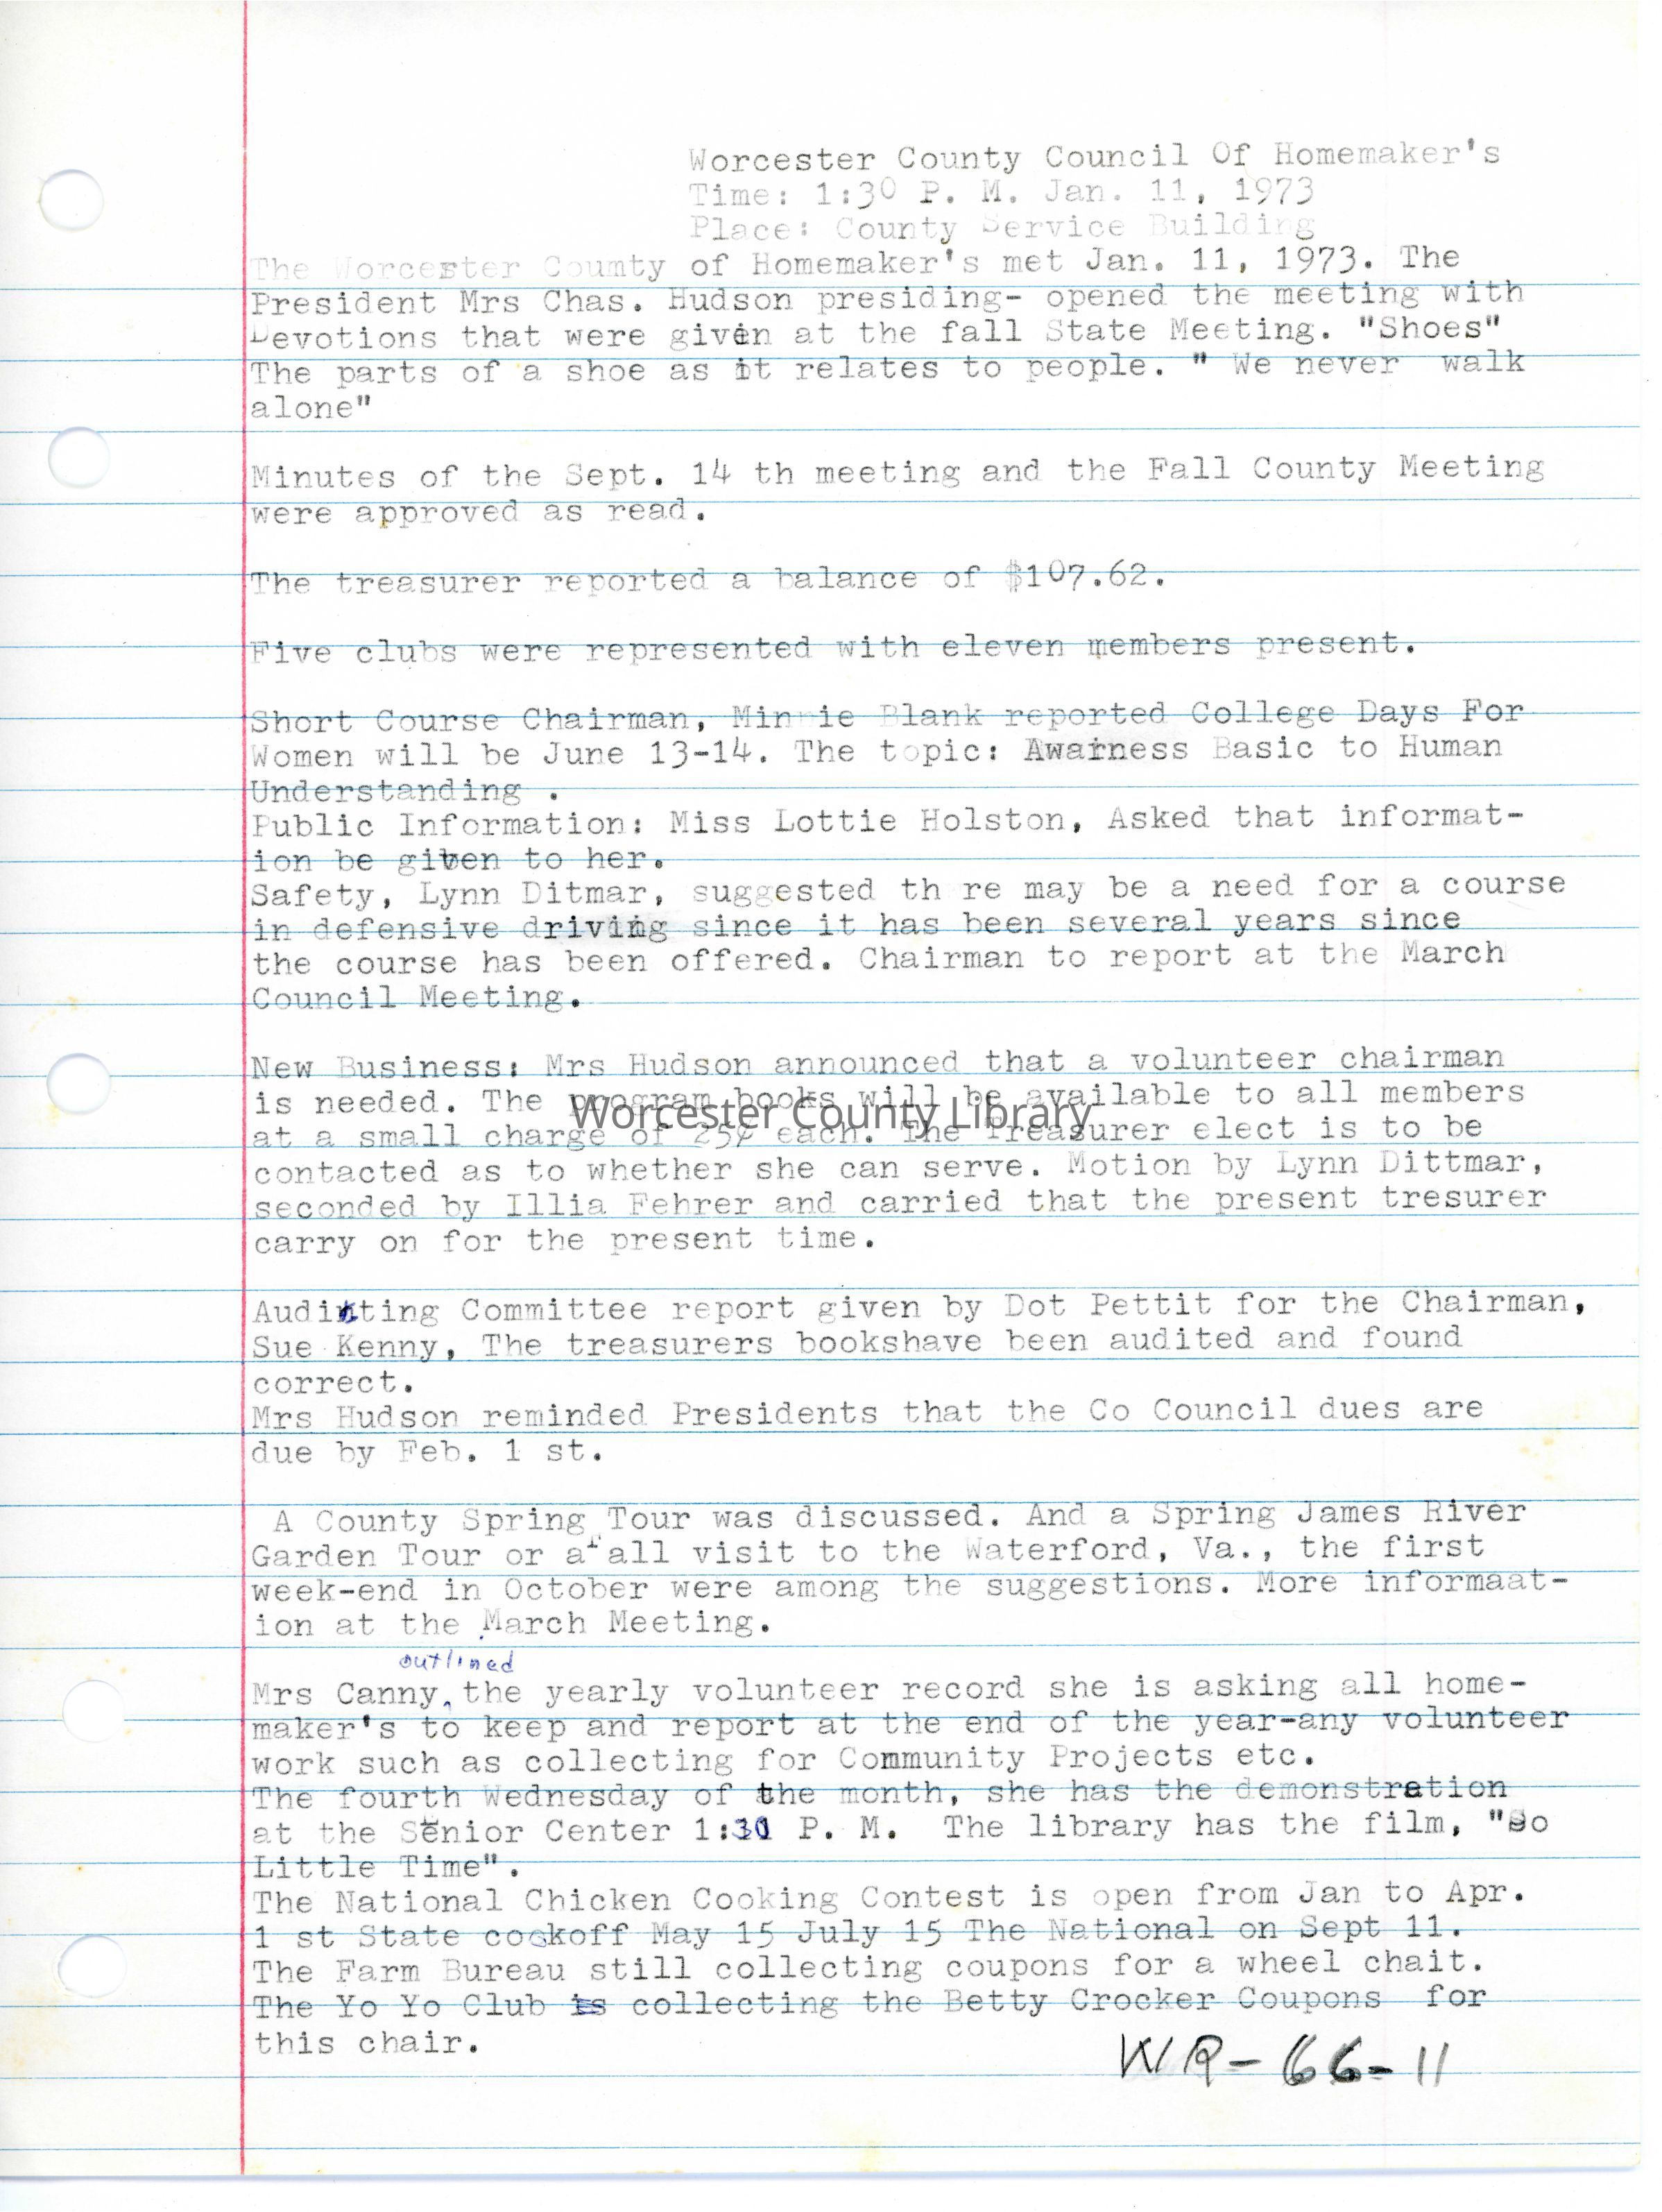 Worcester County Council Of Homemaker's
Time: 1:30 P. M. Jan. 11, 1973
Place: County Service Building
The Worcerter Coumty of Homemaker's met Jan. 11, 1973. The
President Mrs Chas. Hudson presiding- opened the meeting with
Devotions that were given at the fall State Meeting. "Shoes"
The parts of a shoe as it relates to people. " We never walk
alone"
Minutes of the Sept. 14 th meeting and the Fall County Meeting
were approved as read.
The treasurer reported a balance of $107.62.
Five clubs were represented with eleven members present.
Short Course Chairman, Minnie Blank reported College Days For
Women will be June 13-14. The topic: Awairness Basic to Human
Understanding .
Public Information: Miss Lottie Holston, Asked that informat-
ion be given to her.
Safety, Lynn Ditmar, suggested th re may be a need for a course
in defensive driving since it has been several years since
the course has been offered. Chairman to report at the March
Council Meeting.
New Business: Mrs Hudson announced that a volunteer chairman
is needed. The program books will be available to all members
Worcester County Library
at a small charge of 25¢ each. The Treasurer elect is to be
contacted as to whether she can serve. Motion by Lynn Dittmar,
seconded by Illia Fehrer and carried that the present tresurer
carry on for the present time.
Auditting Committee report given by Dot Pettit for the Chairman,
Sue Kenny, The treasurers bookshave been audited and found
correct.
Mrs Hudson reminded Presidents that the Co Council dues are
due by Feb. 1 st.
A County Spring Tour was discussed. And a Spring James River
Garden Tour or a all visit to the Waterford, Va., the first
week-end in October were among the suggestions. More informaat-
ion at the March Meeting.
outlined
Mrs Canny, the yearly volunteer record she is asking all home-
maker's to keep and report at the end of the year-any volunteer
work such as collecting for Community Projects etc.
The fourth Wednesday of the month, she has the demonstration
at the Senior Center 1:30 P. M. The library has the film, "So
Little Time".
The National Chicken Cooking Contest is open from Jan to Apr.
1 st State cookoff May 15 July 15 The National on Sept 11.
The Farm Bureau still collecting coupons for a wheel chait.
The Yo Yo Club is collecting the Betty Crocker Coupons for
this chair.
WR-66-11